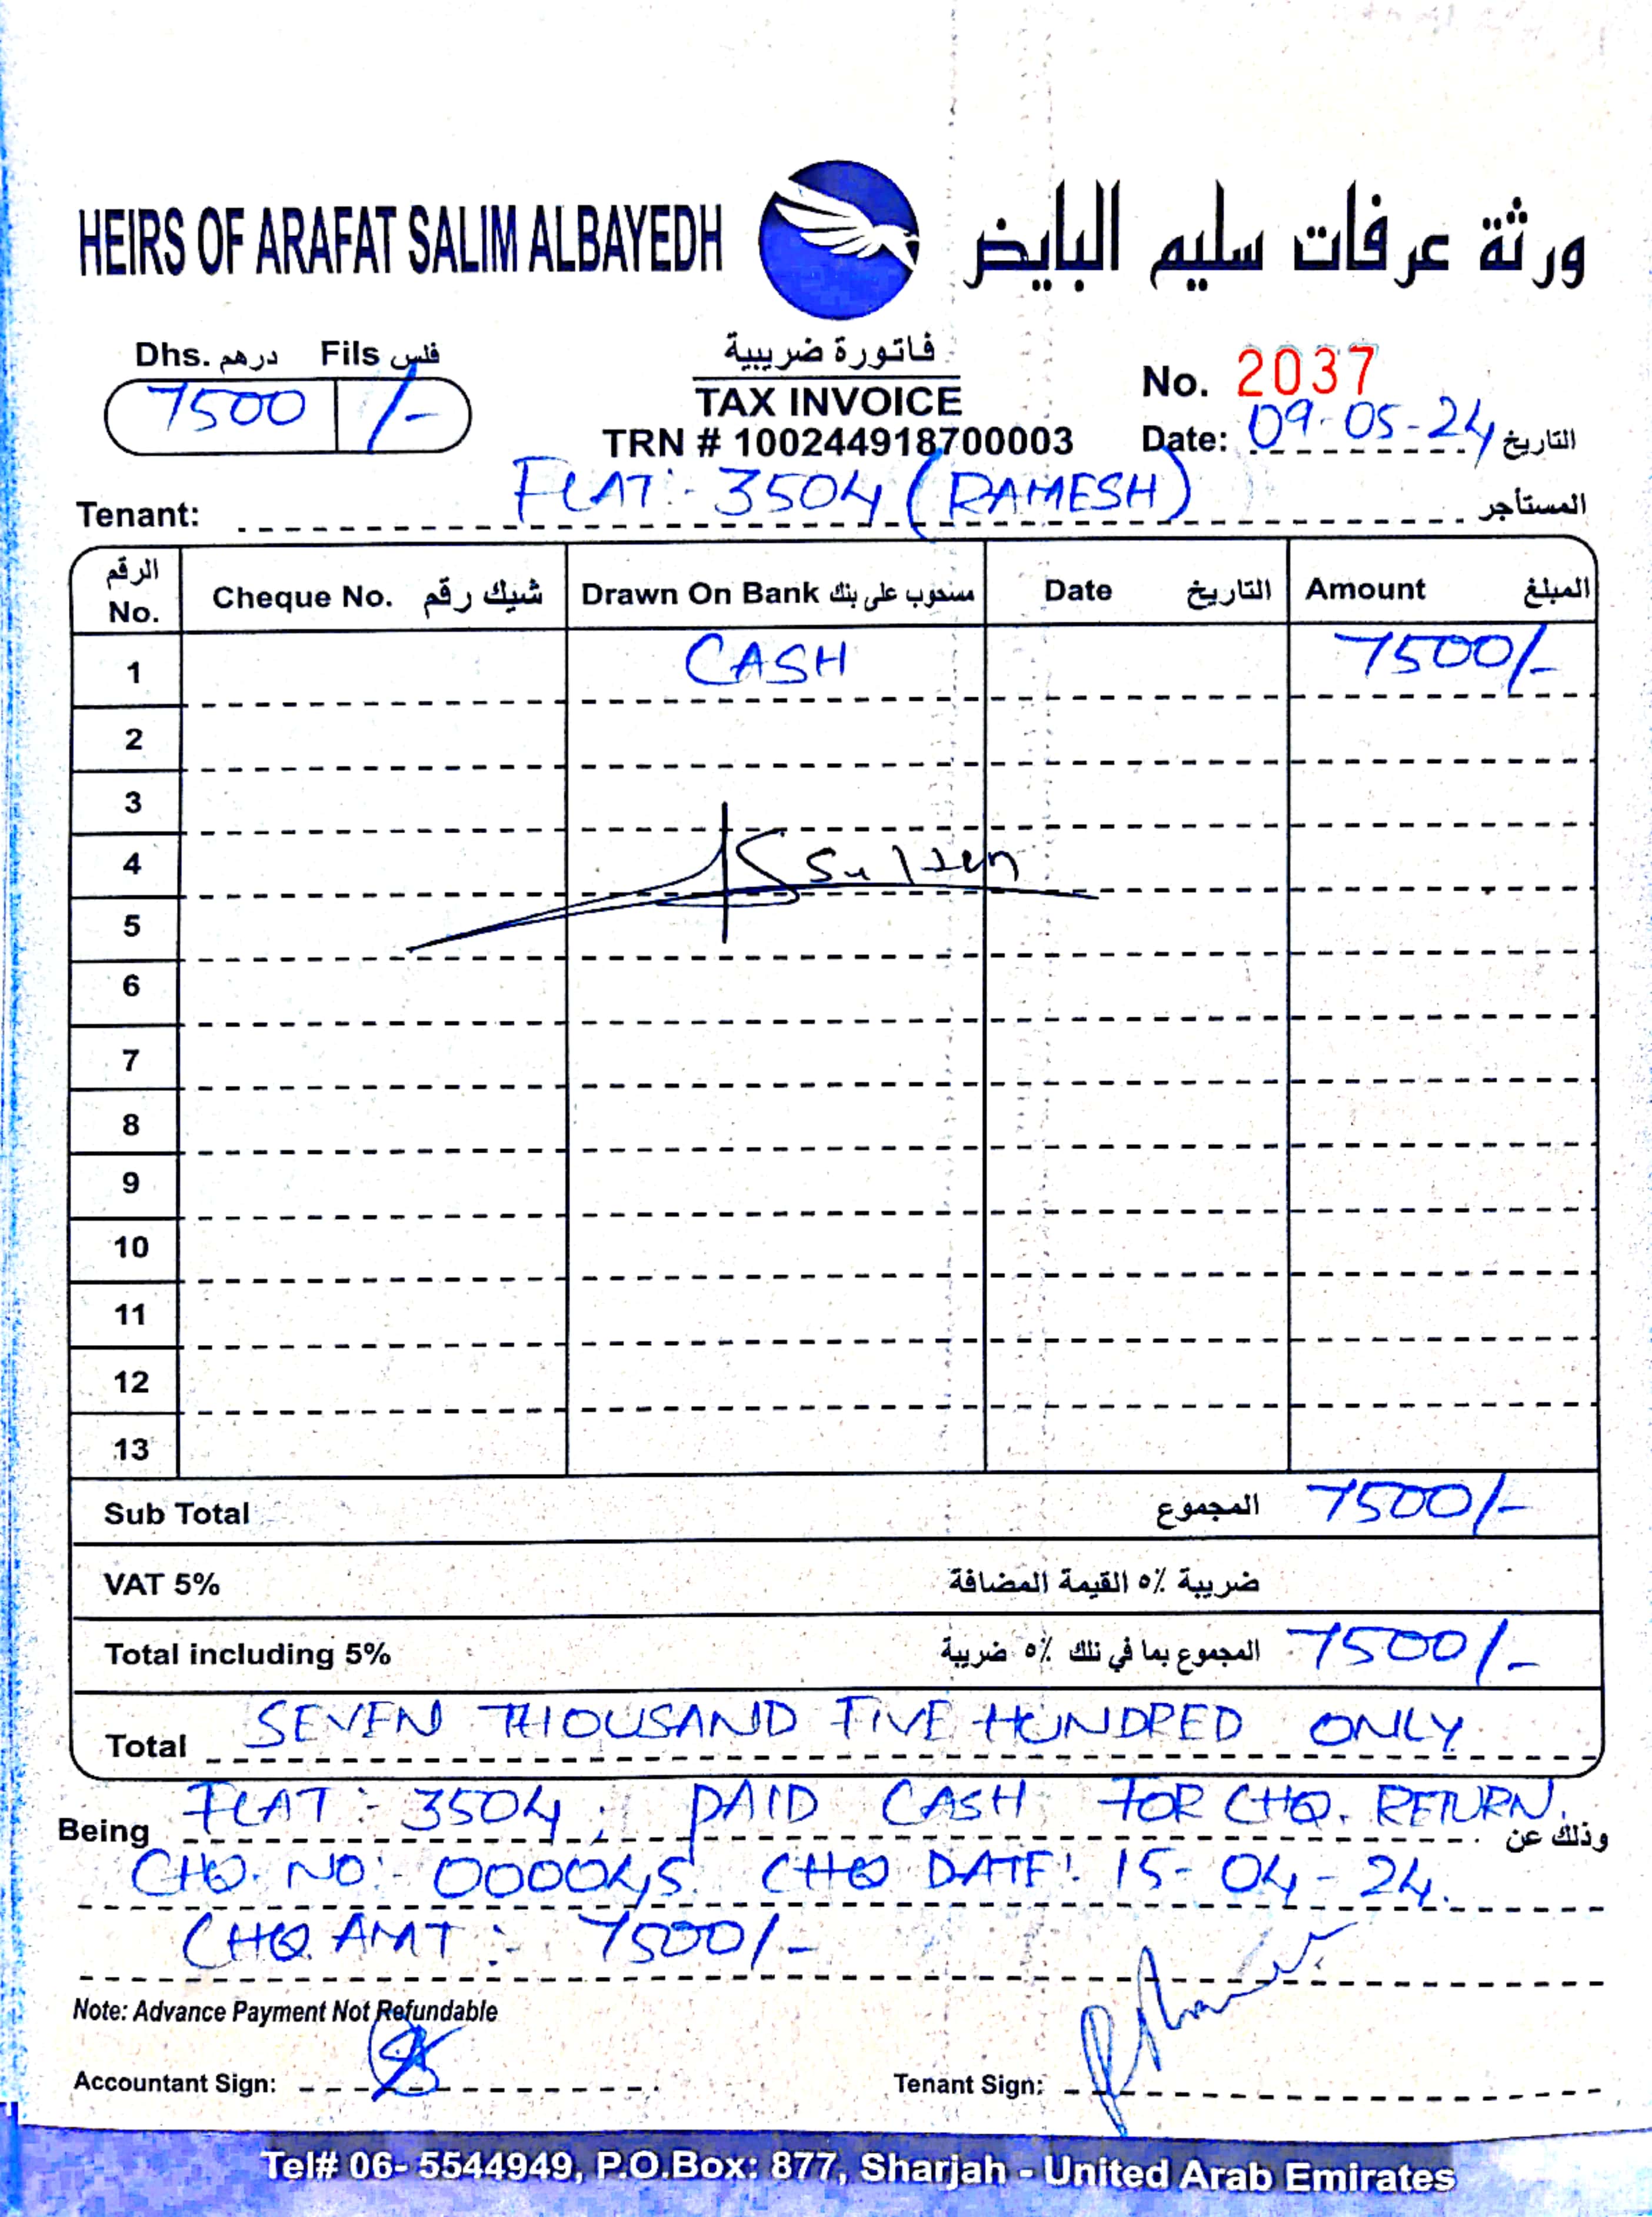 HEIRS OF ARAFAT SALIM ALBAYEDH ورثة عرفات سليم البايض
Dhs. درهم Fils فلس
7500 /-
فاتورة ضريبية
TAX INVOICE
TRN # 100244918700003
No. 2037
Date: 09-05-24 التاريخ
Tenant: FLAT:- 3504 (RAMESH) المستأجر
الرقم No. Cheque No. شيك رقم Drawn On Bank مسحوب على بنك Date التاريخ Amount المبلغ
1 CASH 7500/-
2
3
4
5
6
7
8
9
10
11
12
13
Sub Total المجموع 7500/-
VAT 5% ضريبة ٥٪ القيمة المضافة
Total including 5% المجموع بما في ذلك ٥٪ ضريبة 7500/-
Total SEVEN THOUSAND FIVE HUNDRED ONLY
Being FLAT:- 3504; PAID CASH FOR CHQ. RETURN. وذلك عن
CHQ. NO:- 000045. CHQ DATE: 15-04-24.
CHQ AMT:- 7500/-
Note: Advance Payment Not Refundable
Accountant Sign: Tenant Sign:
Tel# 06- 5544949, P.O.Box: 877, Sharjah - United Arab Emirates